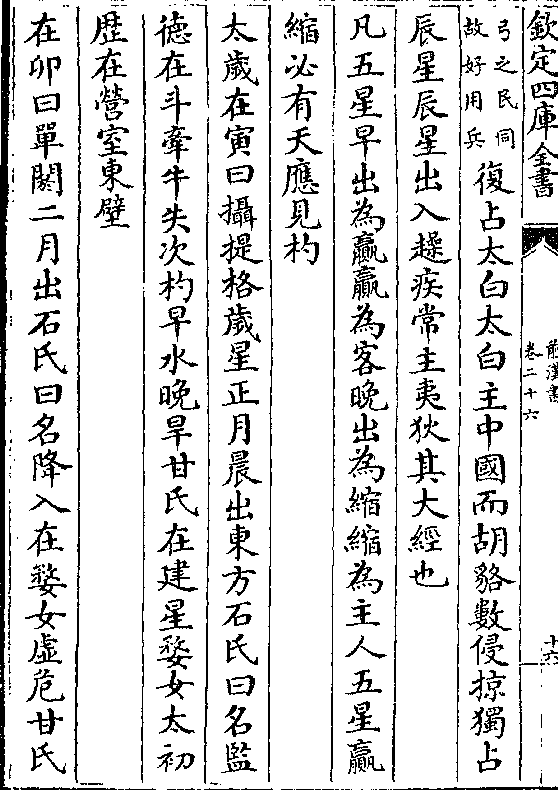 欽定四庫全書
前漢書
卷二十六
十六
弓之民同
故好用兵
復占太白太白主中國而胡貉數侵掠獨占
辰星辰星出入趮疾常主夷狄其大經也
凡五星早出為贏贏為客晚出為縮縮為主人五星贏
縮必有天應見杓
太歲在寅曰攝提格歲星正月晨出東方石氏曰名監
德在斗牽牛失次杓早水晚旱甘氏在建星婺女太初
歷在營室東壁
在卯曰單閼二月出石氏曰名降入在婺女虛危甘氏